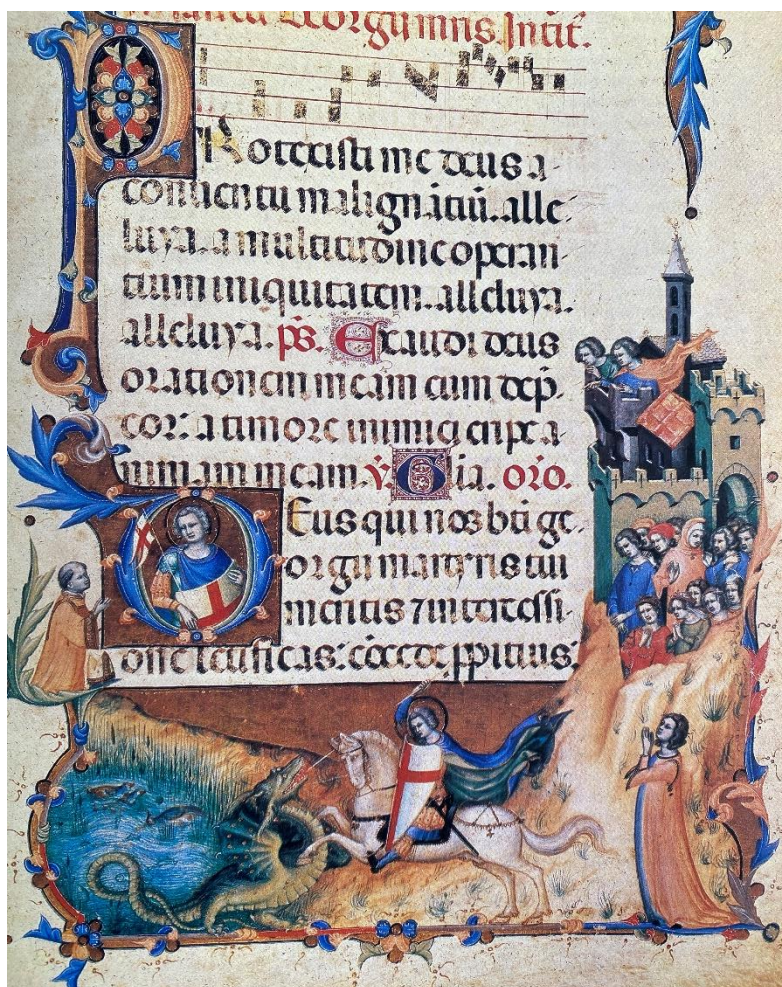 Georgii mris. Intit.
PRotexisti me deus a-
conuentu malignātiū. alle-
luya. a multitudine operan-
tium iniquitatem. alleluya.
alleluya. ps. Exaudi deus
orationem meam cum dep-
cor: a timore inimici eripe a-
nimam meam. v. Glia. oro.
DEus qui nos bti ge-
orgii martyris tui
meritis 7 intercessi-
one letificas: cōcede ppitius: